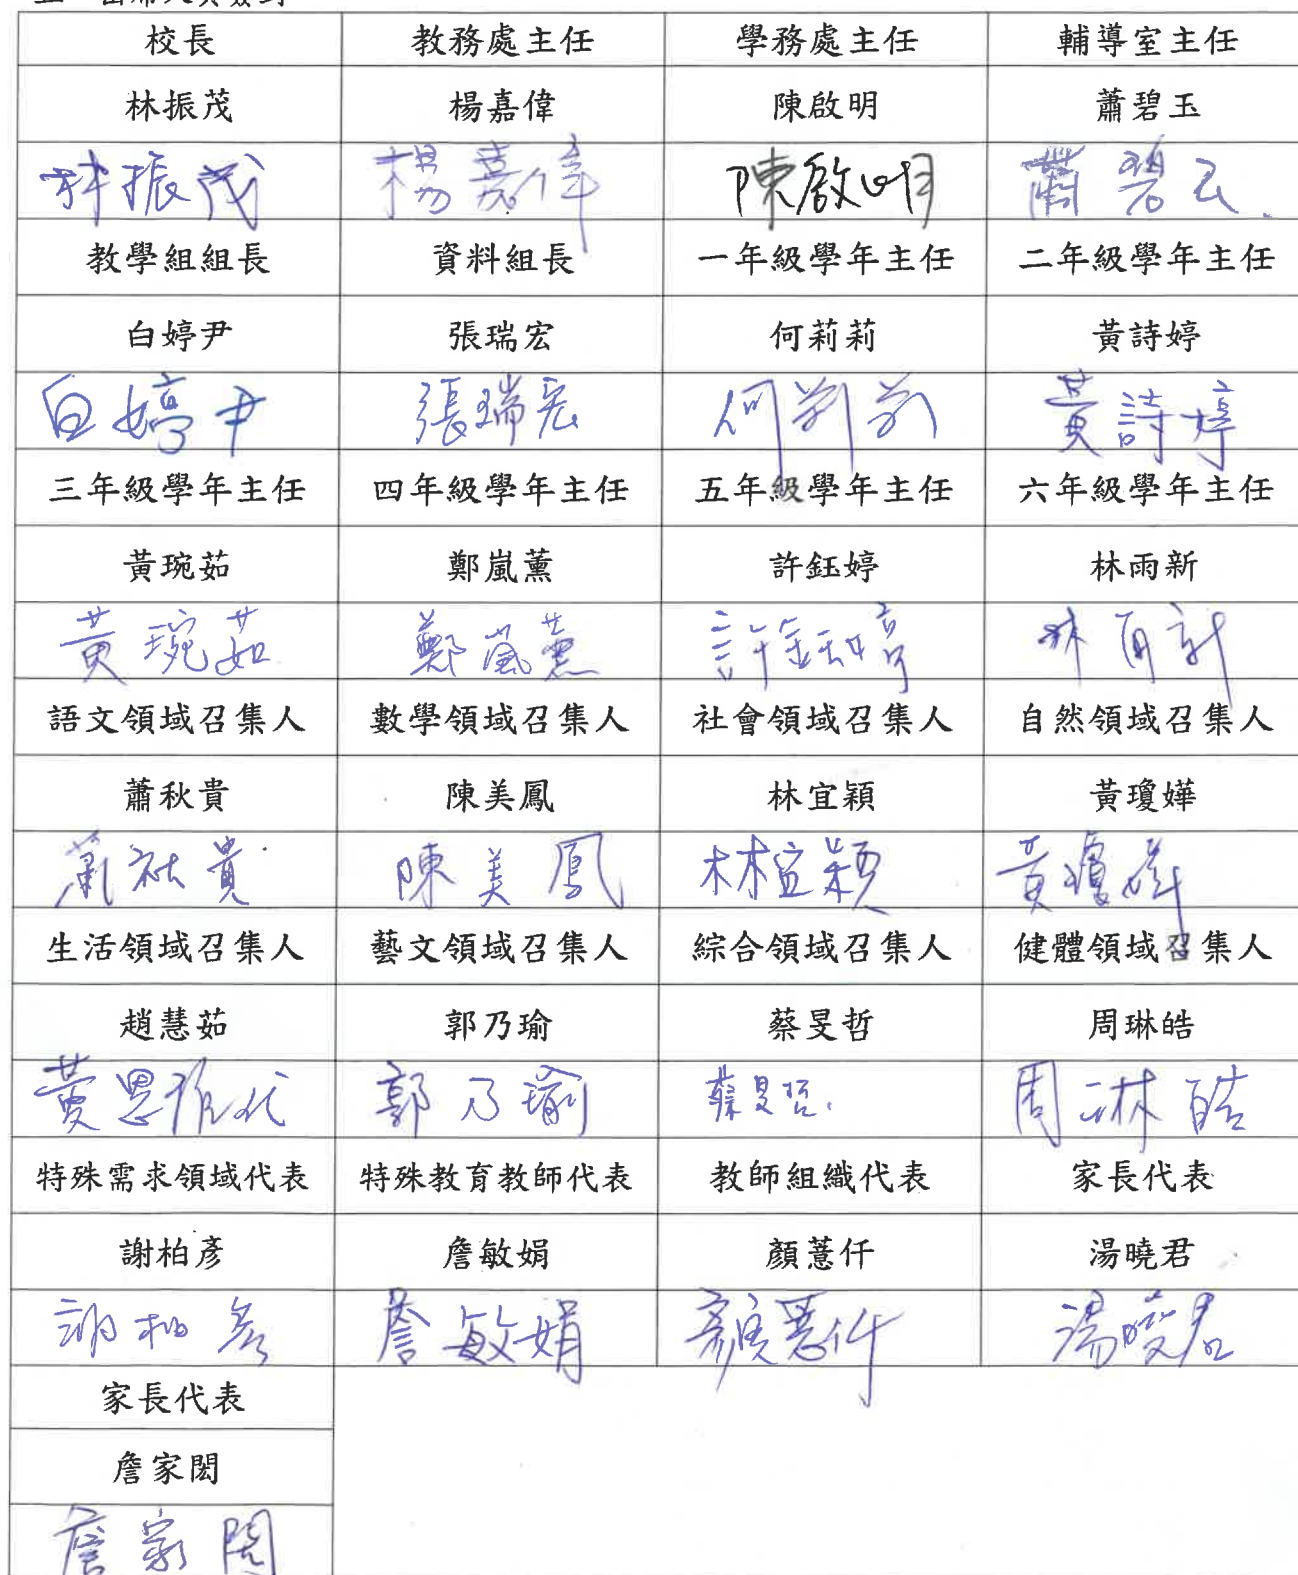 校長 教務處主任 學務處主任 輔導室主任
林振茂 楊嘉偉 陳啟明 蕭碧玉
林振茂 楊嘉偉 陳啟明 蕭碧玉
教學組組長 資料組長 一年級學年主任 二年級學年主任
白婷尹 張瑞宏 何莉莉 黃詩婷
白婷尹 張瑞宏 何莉莉 黃詩婷
三年級學年主任 四年級學年主任 五年級學年主任 六年級學年主任
黃琬茹 鄭嵐薰 許鈺婷 林雨新
黃琬茹 鄭嵐薰 許鈺婷 林雨新
語文領域召集人 數學領域召集人 社會領域召集人 自然領域召集人
蕭秋貴 陳美鳳 林宜穎 黃瓊嬅
蕭秋貴 陳美鳳 林宜穎 黃瓊嬅
生活領域召集人 藝文領域召集人 綜合領域召集人 健體領域召集人
趙慧茹 郭乃瑜 蔡旻哲 周琳皓
郭乃瑜 蔡旻哲 周琳皓
特殊需求領域代表 特殊教育教師代表 教師組織代表 家長代表
謝柏彥 詹敏娟 顏薏仟 湯曉君
謝柏彥 詹敏娟 顏薏仟 湯曉君
家長代表
詹家閎
詹家閎